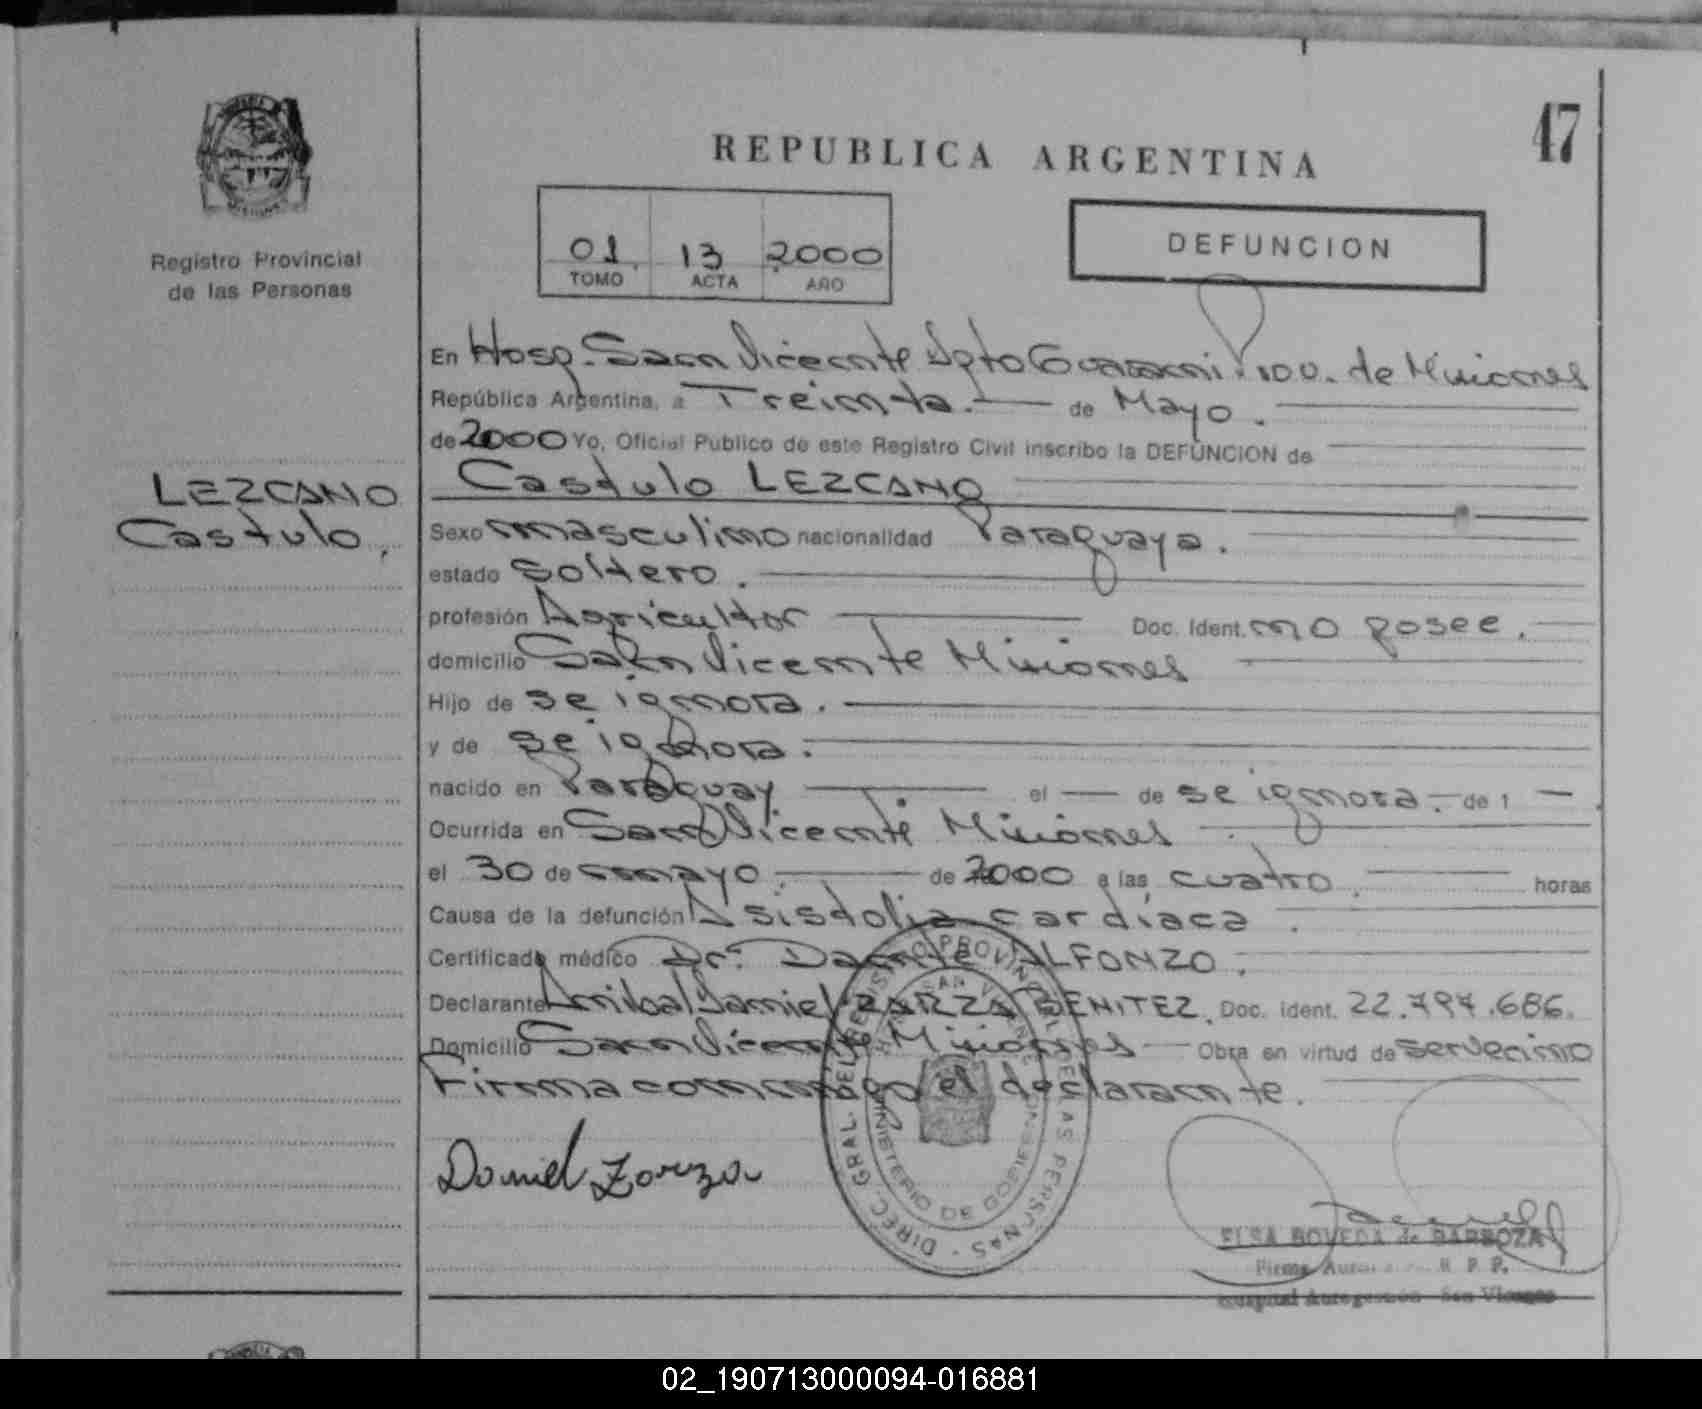 47
REPUBLICA ARGENTINA
Registro Provincial
de las Personas
01 13 2000
TOMO ACTA AÑO
DEFUNCION
LEZCANO
Castulo,
En Hosp. San Vicente Dpto Guarani Prov. de Misiones
República Argentina, a Treinta. de Mayo.
de 2000 Yo, Oficial Público de este Registro Civil inscribo la DEFUNCION de
Castulo LEZCANO
Sexo masculino nacionalidad Paraguaya.
estado Soltero.
profesión Agricultor Doc. Ident. no posee.
domicilio San Vicente Misiones
Hijo de se ignora.
y de se ignora.
nacido en Paraguay el — de se ignora. de 1 —
Ocurrida en San Vicente Misiones
el 30 de mayo. de 2000 a las cuatro. horas
Causa de la defunción Asistolia cardiaca.
Certificado médico Dr. Dante ALFONZO.
Declarante Anibal Daniel ZARZA BENITEZ. Doc. Ident. 22.797.686.
Domicilio San Vicente Misiones — Obra en virtud de
Firma conmigo el declarante.
Daniel Zarza
DIREC. GRAL DEL REGISTRO PROVINCIAL DE LAS PERSONAS
MINISTERIO DE GOBIERNO
ELSA BOVEDA de BARBOZA
Firma R. P. P.
Hospital Autogestión San Vicente
02_190713000094-016881